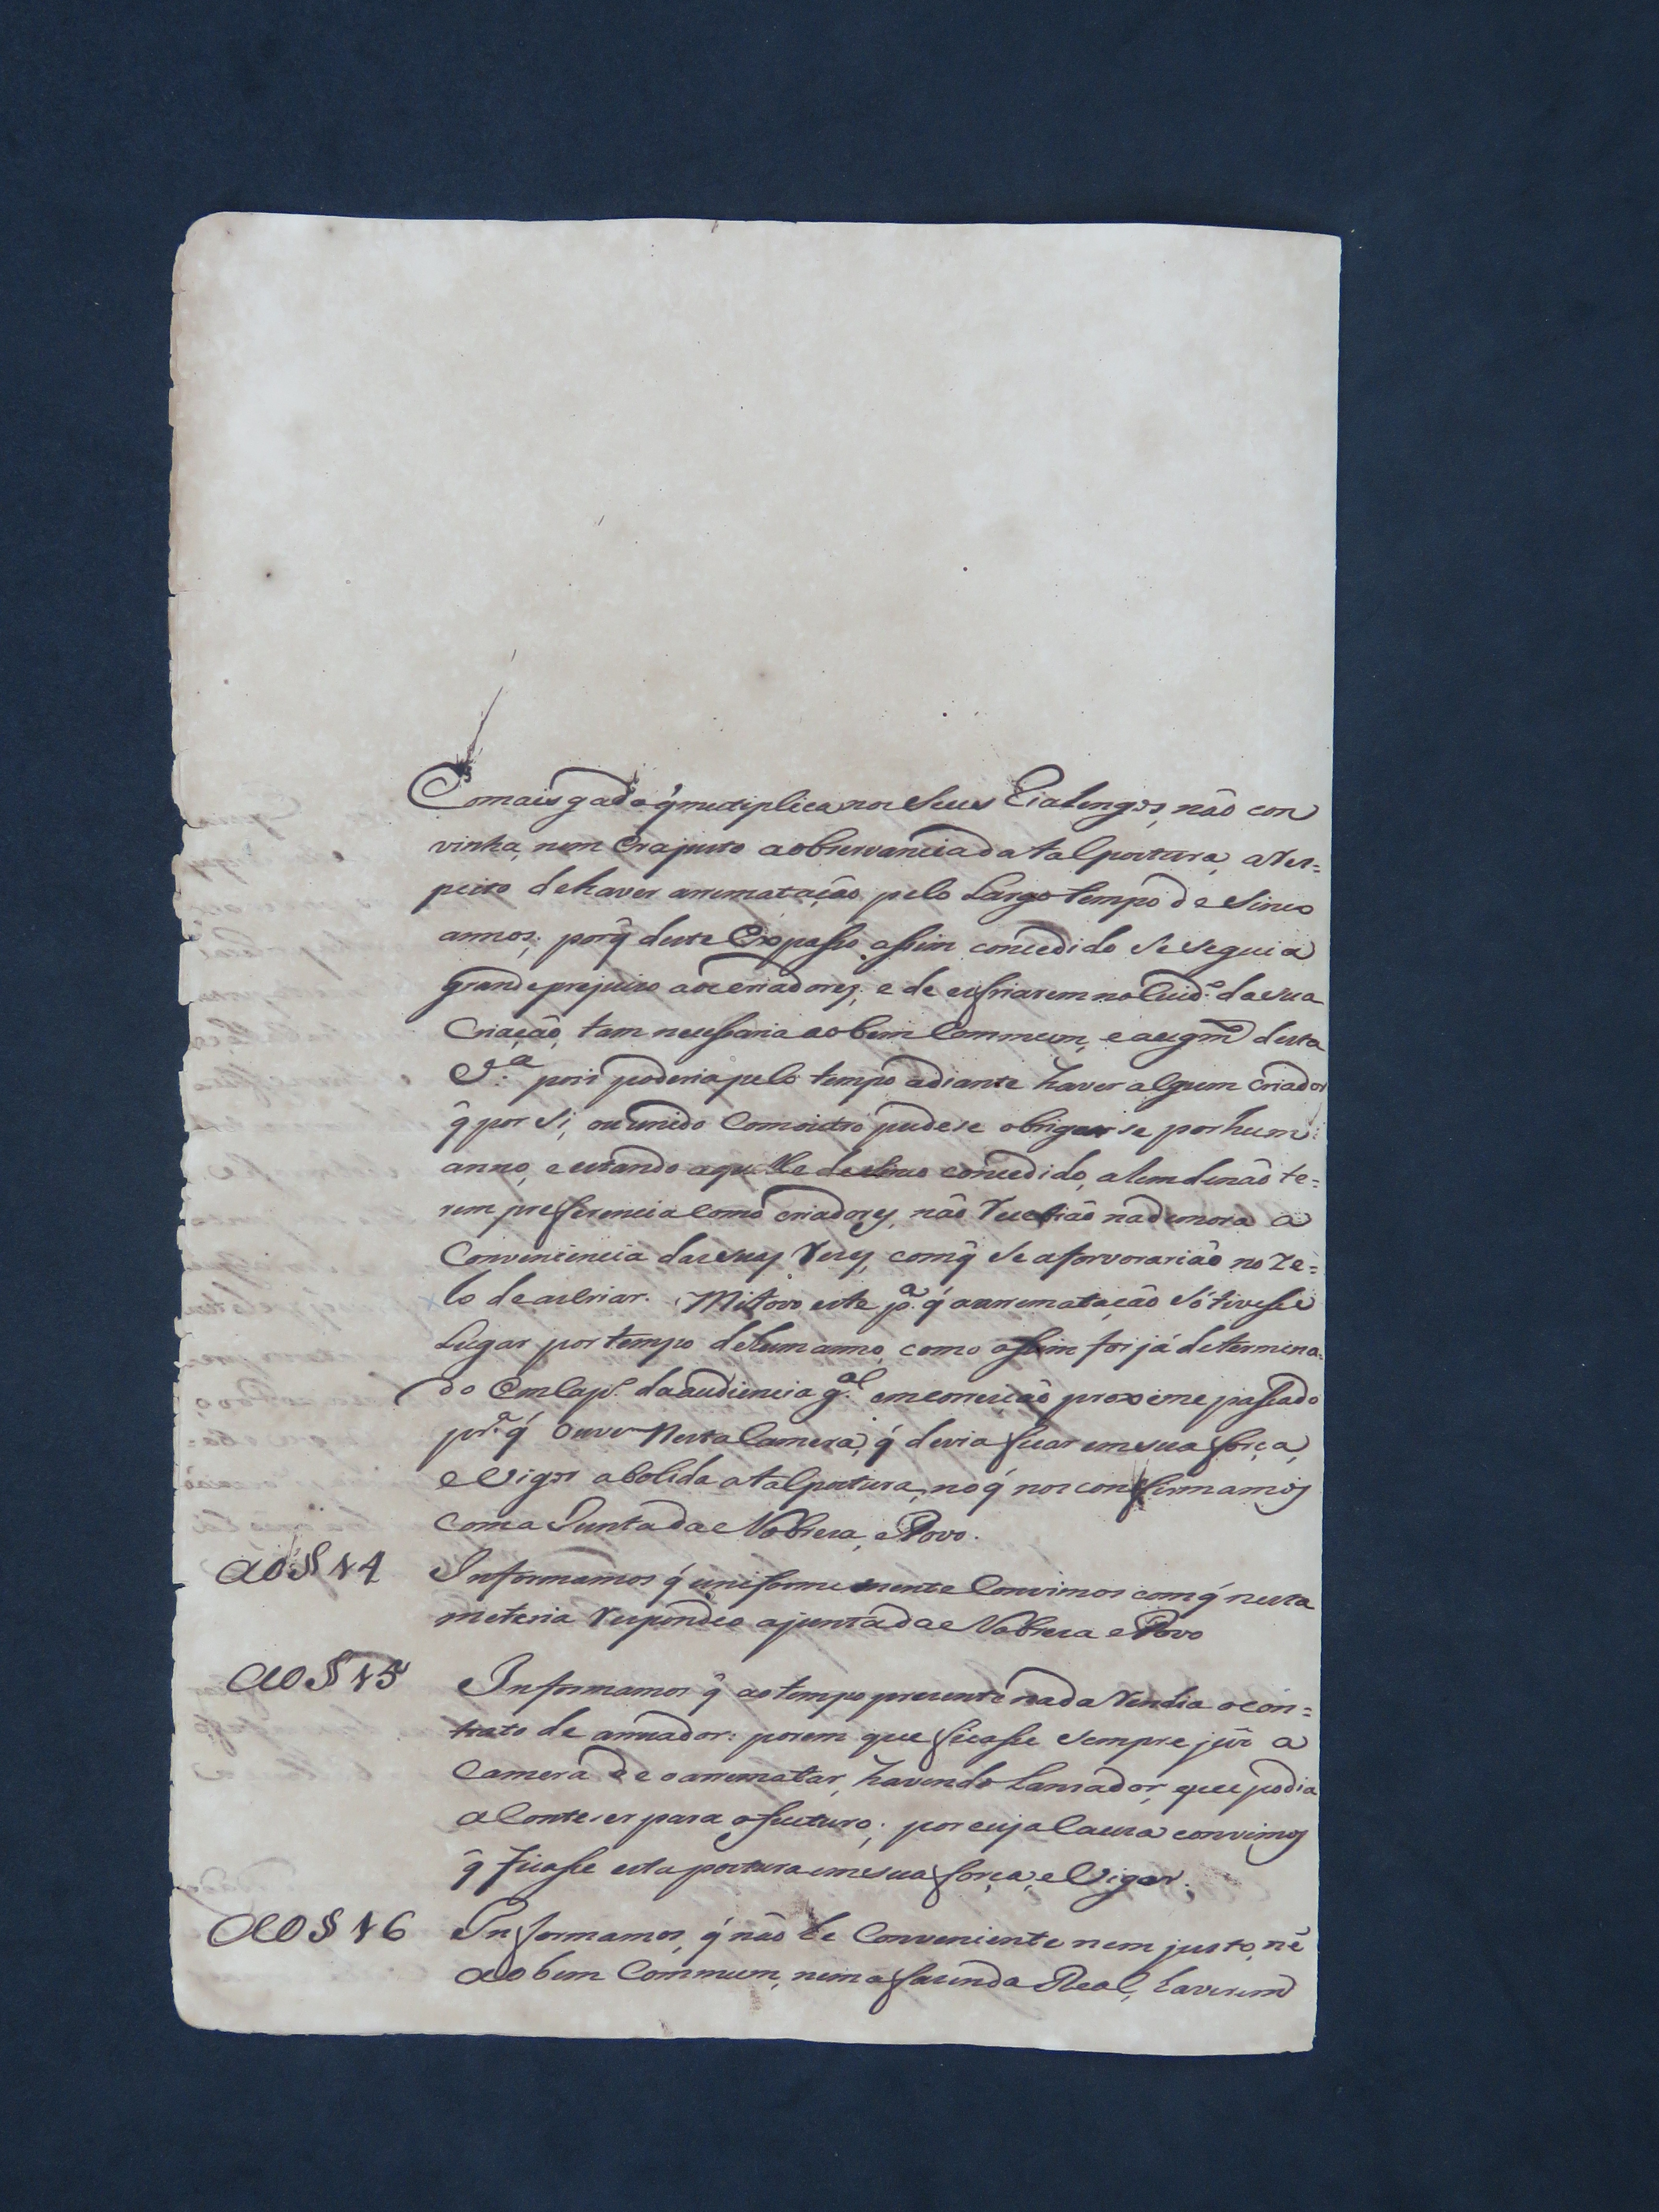 E o mais gado q̃ multiplica nos seus Rialengos, não con
vinha, nem era justo a observancia da tal postura, a res=
peito de haver arrematação pelo largo tempo de sinco
annos: porq̃ deste Expasso assim concedido se seguia
grande prejuizo aos criadores; e de esfriarem no Cuid.º da sua
Criação, tam necessaria ao bem Commum, e augm.to desta
pois poderia pelo tempo adiante haver algum criador
q̃ por si, ou unido Com outro pudese obrigarse por hum
anno, e estando aquelle de sinco concedido, alem de não te=
rem preferencia Como criadores, não recebião na demora a
Conveniencia das suas reses, comq̃ se afervorarião no Ze=
lo de as Criar. Motivo este p.ª q̃ a arrematação só tivesse
Lugar por tempo de hum anno, como assim foi já determina=
do Em Cap.º da audiencia g.al em correição proxime passado
q̃ ouve Nesta Camera; q̃ devia ficar em sua força,
e Vigor abolida a tal postura, no q̃ nos confirmamos
Com a Junta da Nobresa, e Povo.
Ao § 14 Informamos q̃ uniformemente Convimos comq̃ nesta
meteria respondeo a junta da Nobresa e Povo
Ao § 15 Informamos q̃ ao tempo presente nada Rendia o con=
trato de amuador: porem que ficasse sempre jũs a
Camera de o arrematar, havendo Lansador, que podia
aContecer para o futuro; por cuja Causa convimos
q̃ ficasse esta postura em sua força, e Vigor.
Ao § 16 Informamos, q̃ não he Conveniente nem justo, nẽ
ao bem Commum, nem a fasenda Real, haverem